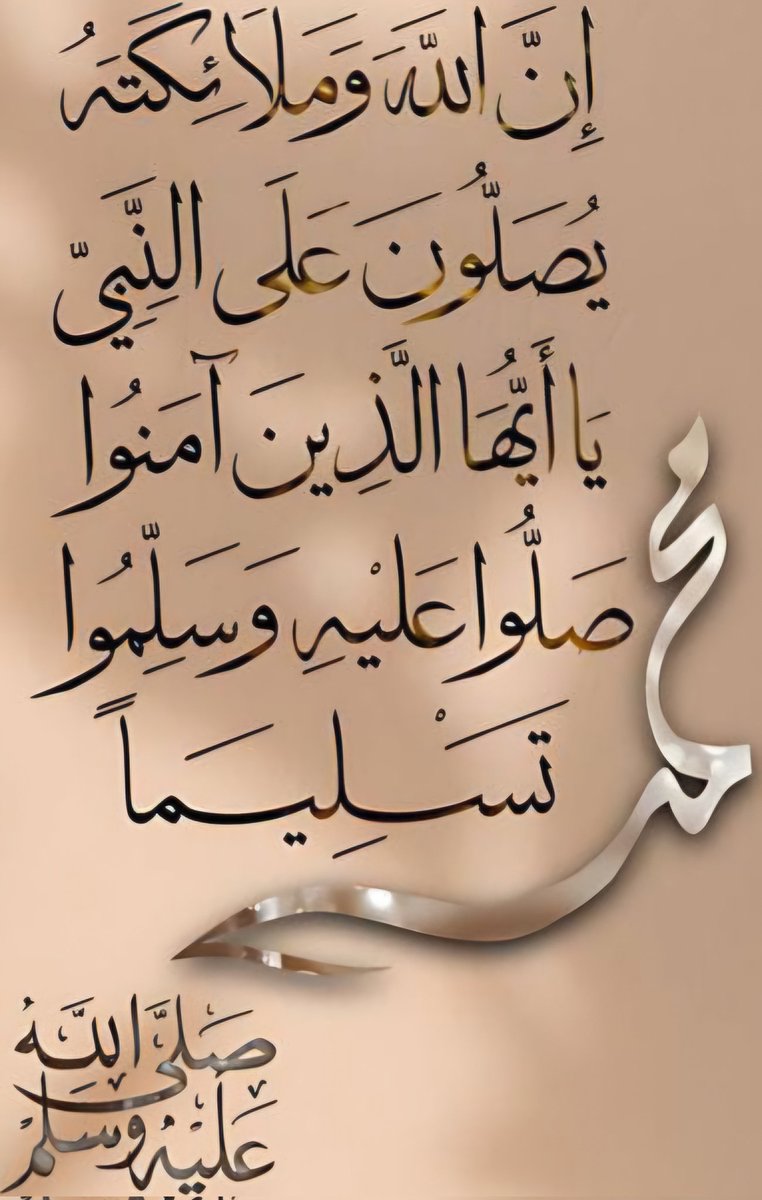 إِنَّ اللَّهَ وَمَلَائِكَتَهُ
يُصَلُّونَ عَلَى النَّبِيِّ
يَا أَيُّهَا الَّذِينَ آمَنُوا
صَلُّوا عَلَيْهِ وَسَلِّمُوا
تَسْلِيمًا
محمد
صَلَّى اللَّهُ
عَلَيْهِ وَسَلَّمْ